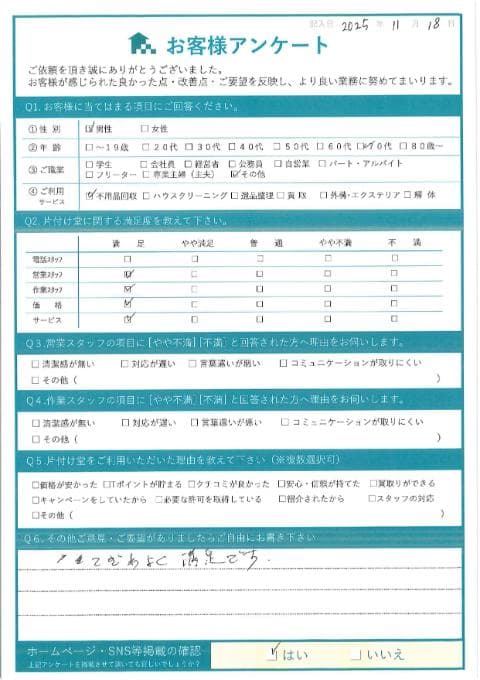 記入日 2025 年 11 月 18 日
お客様アンケート
ご依頼を頂き誠にありがとうございました。
お客様が感じられた良かった点・改善点・ご要望を反映し、より良い業務に努めてまいります。
Q1. お客様に当てはまる項目にご回答ください。
①性 別 ☑男性 □女性
②年 齢 □～19歳 □20代 □30代 □40代 □50代 □60代 ☑70代 □80歳～
③ご職業 □学生 □会社員 □経営者 □公務員 □自営業 □パート・アルバイト
□フリーター □専業主婦（主夫） ☑その他
④ご利用サービス ☑不用品回収 □ハウスクリーニング □遺品整理 □買取 □外構・エクステリア □解体
Q2. 片付け堂に関する満足度を教えて下さい。
満 足 やや満足 普 通 やや不満 不 満
電話スタッフ □ □ □ □ □
営業スタッフ ☑ □ □ □ □
作業スタッフ ☑ □ □ □ □
価 格 ☑ □ □ □ □
サービス ☑ □ □ □ □
Q3.営業スタッフの項目に［やや不満］［不満］と回答された方へ理由をお伺いします。
□清潔感が無い □対応が遅い □言葉遣いが悪い □コミュニケーションが取りにくい
□その他（ ）
Q4.作業スタッフの項目に［やや不満］［不満］と回答された方へ理由をお伺いします。
□清潔感が無い □対応が遅い □言葉遣いが悪い □コミュニケーションが取りにくい
□その他（ ）
Q5.片付け堂をご利用いただいた理由を教えて下さい（※複数選択可）
□価格が安かった □Tポイントが貯まる □クチコミが良かった □安心・信頼が持てた □買取りができる
□キャンペーンをしていたから □必要な許可を取得している □紹介されたから □スタッフの対応
□その他（ ）
Q6.その他ご意見・ご要望がありましたらご自由にお書き下さい
満足です.
ホームページ・SNS等掲載の確認 ☑はい □いいえ
上記アンケートを掲載させて頂いても宜しいでしょうか？